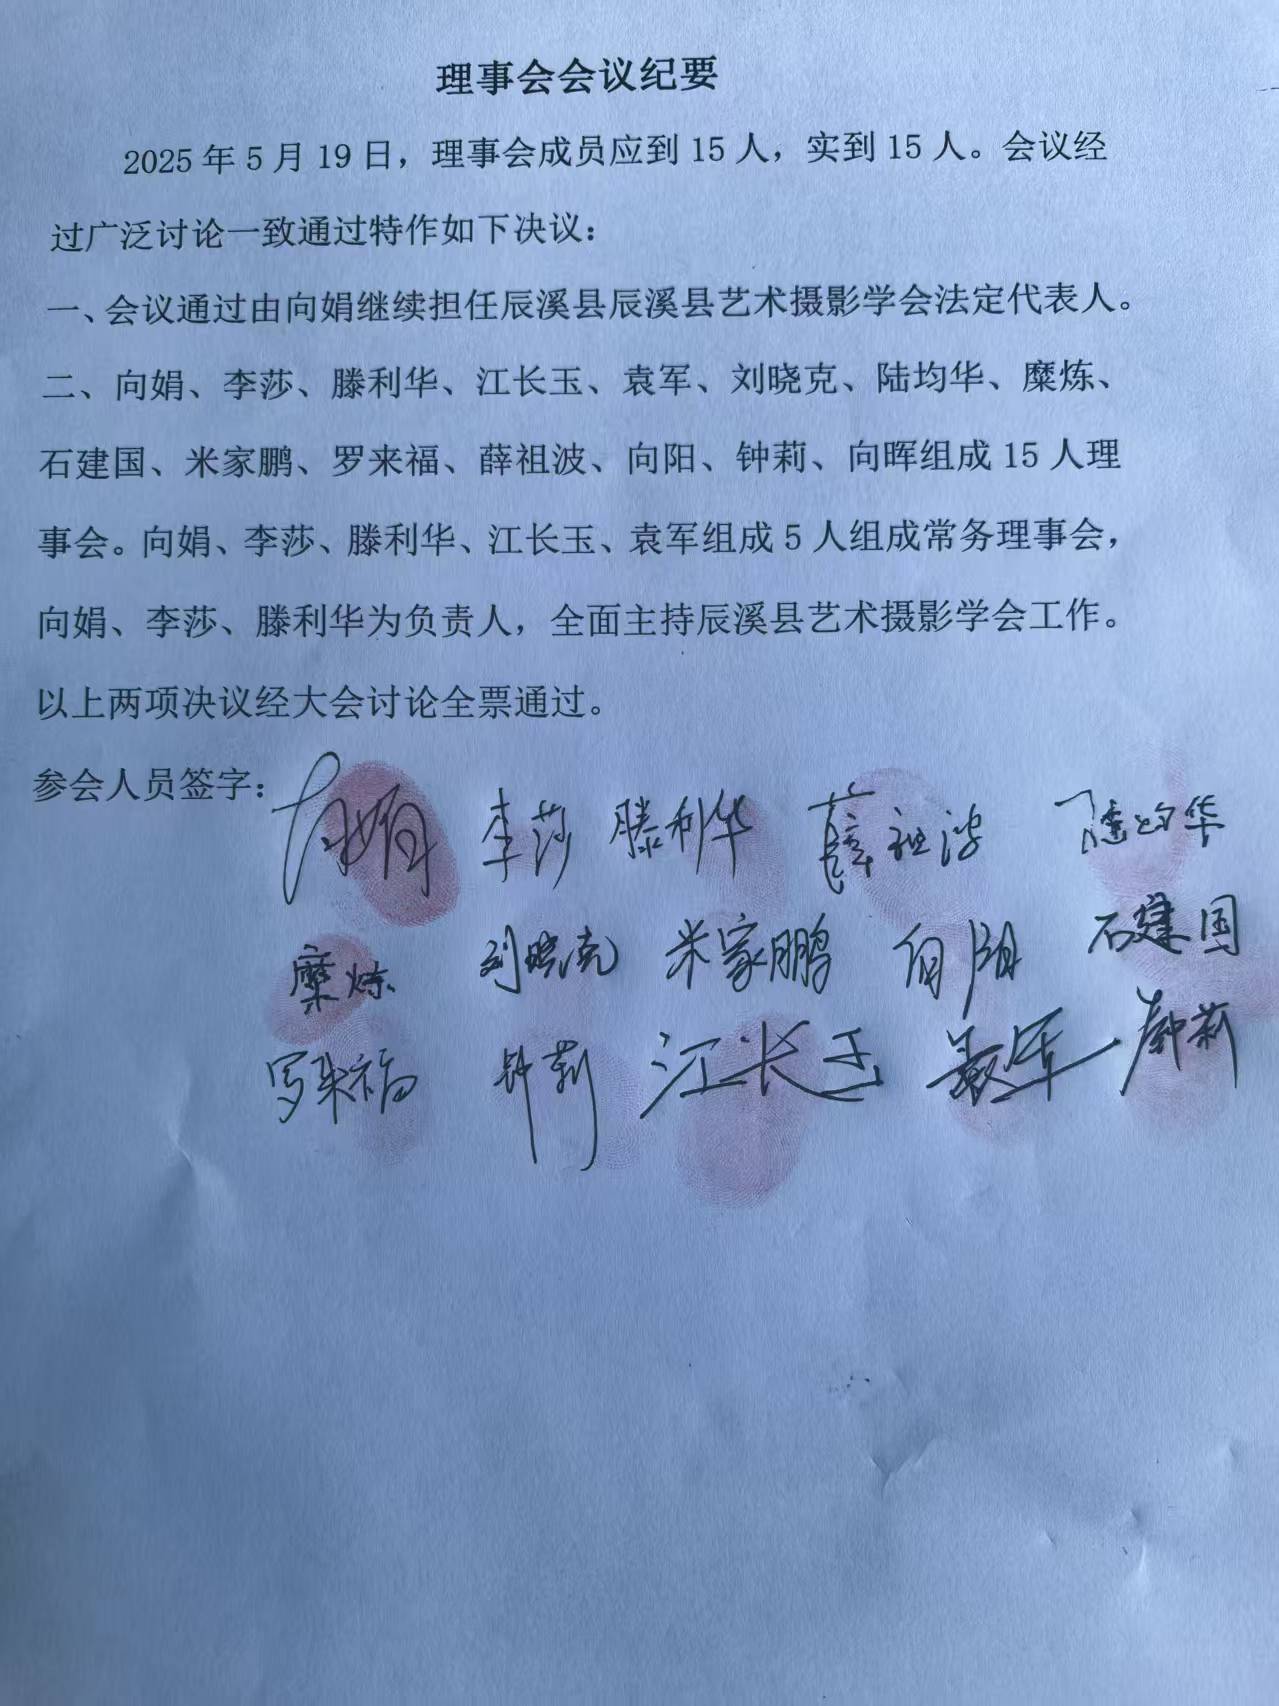 理事会会议纪要
2025年5月19日，理事会成员应到15人，实到15人。会议经
过广泛讨论一致通过特作如下决议：
一、会议通过由向娟继续担任辰溪县辰溪县艺术摄影学会法定代表人。
二、向娟、李莎、滕利华、江长玉、袁军、刘晓克、陆均华、糜炼、
石建国、米家鹏、罗来福、薛祖波、向阳、钟莉、向晖组成15人理
事会。向娟、李莎、滕利华、江长玉、袁军组成5人组成常务理事会，
向娟、李莎、滕利华为负责人，全面主持辰溪县艺术摄影学会工作。
以上两项决议经大会讨论全票通过。
参会人员签字：
向娟 李莎 滕利华 薛祖波 华
糜炼 刘晓克 米家鹏 向阳 石建国
罗来福 钟莉 江长玉 军 莉